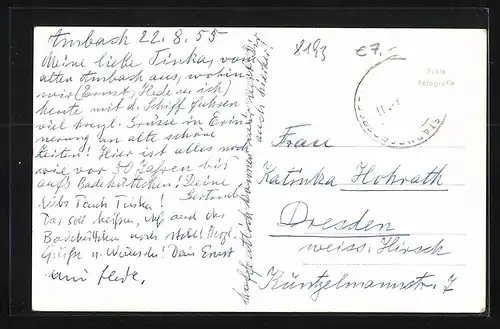 Ambach 22.8.55
Meine liebe Tinka, vom
alten Ambach aus, wohin
wir (Ernst, Hede u. ich)
heute mit d. Schiff fuhren
viel herzl. Grüsse in Erin-
nerung an alte schöne
Zeiten! Hier ist alles noch
wie vor 50 Jahren bis
aufs Badehüttchen! Deine
Gertrud
Tante Tinka!
Das soll heißen, daß auch das
Badehüttchen noch steht! Herzl.
Grüße u. Wünsche! Dein Ernst
und Hede.
hoffentlich kommen
auch wieder!
8193
€7.-
Echte
Fotografie
Frau
Katinka Hohrath
Dresden
weiss. Hirsch
Küntzelmannstr. 7